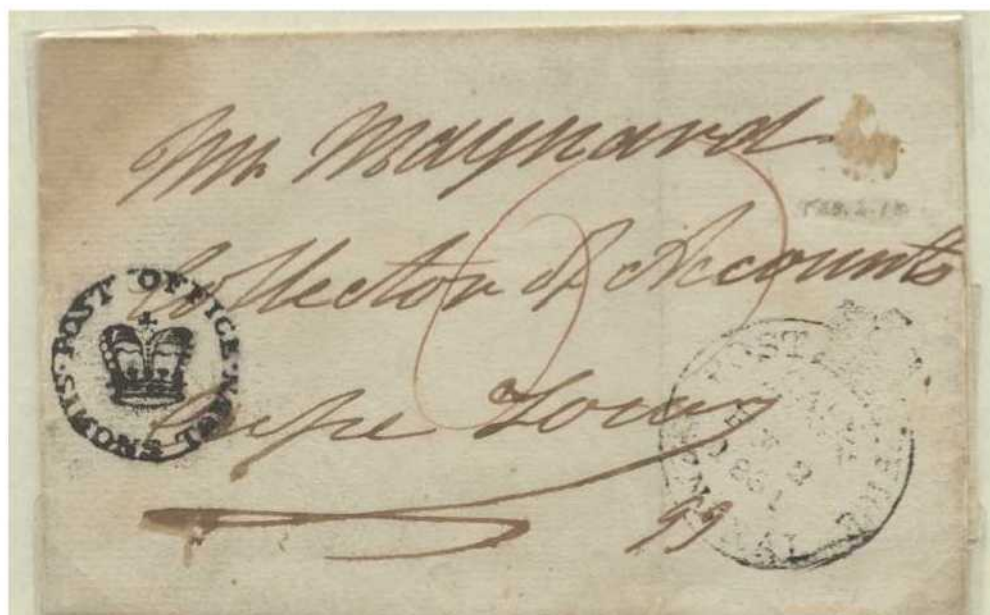 Mr Maynard
Collector of Accounts
Cape Town
99
POST OFFICE
SIMONS TOWN
POST